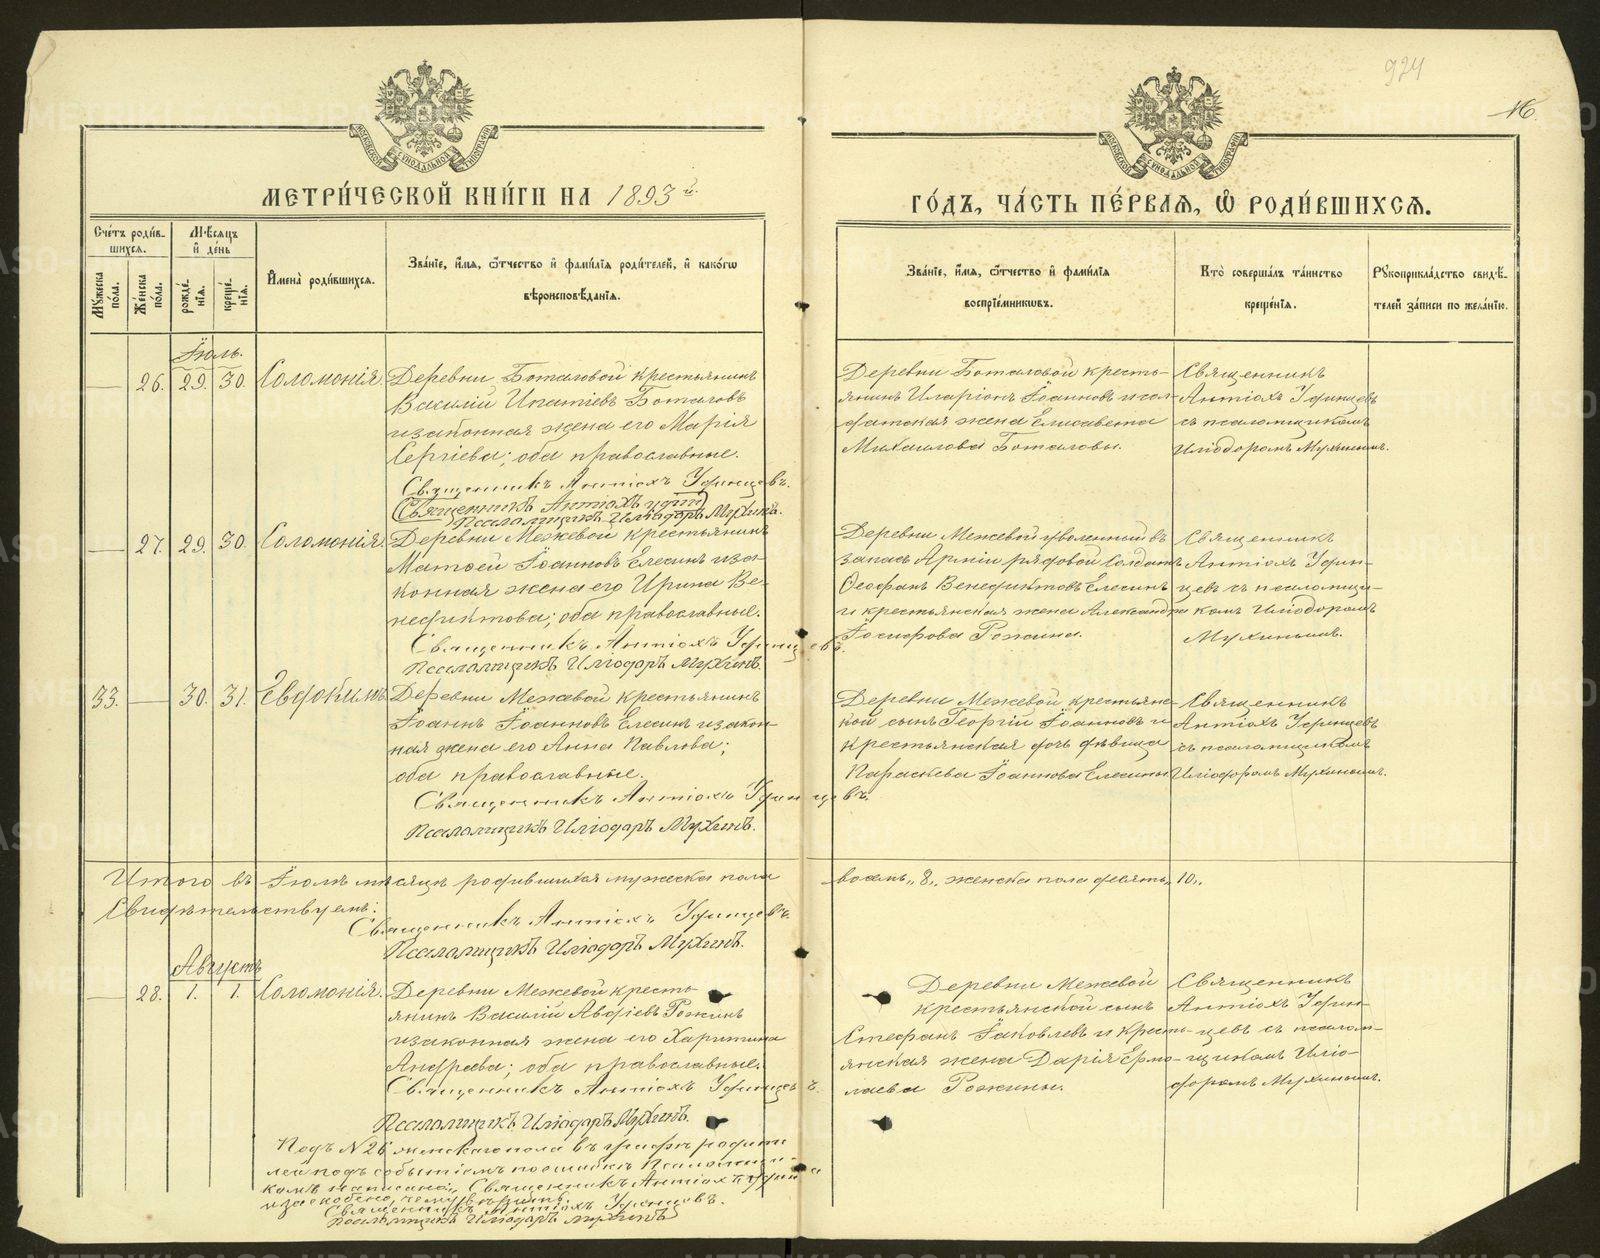 924
16.
МЕТРИ́ЧЕСКОЙ КНИ́ГИ НА 1893й
ГО́ДЪ, ЧА́СТЬ ПЕ́РВАЯ, Ѡ РОДИ́ВШИХСЯ.
МОСКОВСКОЙ СѴНОДАЛЬНОЙ ТИПОГРАФІИ
МОСКОВСКОЙ СѴНОДАЛЬНОЙ ТИПОГРАФІИ
Сче́тъ роди́в-
шихся.
Му́жеска
по́ла.
Же́нска
по́ла.
Мѣ́сяцъ
и̂ де́нь
рожде́-
нїя.
креще́-
нїя.
И̂мена̀ роди́вшихся.
Зва́нїе, и̂́мя, ѻ̂́тчество и̂ фами́лїя роди́телей, и̂ како́гѡ
вѣроисповѣ́данїя.
Зва́нїе, и̂́мя, ѻ̂́тчество и̂ фами́лїя
воспрїе́мниковъ.
Кто̀ соверша́лъ та́инство
креще́нїя.
Рꙋкоприкла́дство свидѣ́-
телей за́писи по жела́нїю.
Іюль.
26. 29. 30. Соломонія.
Деревни Боталовой крестьянинъ
Василій Ипатіевъ Боталовъ
и законная жена его Марія
Сергіева; оба православные.
Священникъ Антіохъ Уфинцевъ.
(Священникъ Антіохъ Уфин)
Псаломщикъ Иліодоръ Мухинъ.
Деревни Боталовой кресть-
янинъ Иларіонъ Іоанновъ и сол-
датская жена Елисавета
Михаилова Боталовы.
Священникъ
Антіохъ Уфинцевъ
съ псаломщикомъ
Иліодоромъ Мухинымъ.
27. 29. 30. Соломонія.
Деревни Межевой крестьянинъ
Матѳей Іоанновъ Елесинъ и за-
конная жена его Ирина Ве-
недиктова; оба православные.
Священникъ Антіохъ Уфинцевъ.
Псаломщикъ Иліодоръ Мухинъ.
Деревни Межевой уволенный въ
запасъ Арміи рядовой Солдатъ
Ѳеофанъ Венедиктовъ Елесинъ
и крестьянская жена Александра
Іосифова Рожина.
Священникъ
Антіохъ Уфин-
цевъ съ псаломщи-
комъ Иліодоромъ
Мухинымъ.
33. 30. 31. Евдокимъ
Деревни Межевой крестьянинъ
Іоаннъ Іоанновъ Елесинъ и закон-
ная жена его Анна Павлова;
оба православные.
Священникъ Антіохъ Уфинцевъ.
Псаломщикъ Иліодоръ Мухинъ.
Деревни Межевой крестьянс-
кой сынъ Георгій Іоанновъ и
крестьянская дочь дѣвица
Параскева Іоаннова Елесины
Священникъ
Антіохъ Уфинцевъ
съ псаломщикомъ
Иліодоромъ Мухинымъ.
Итого въ Іюлѣ мѣсяцѣ родившихся мужеска пола
восемь „8„ женска пола девять „10„
Свидѣтельствуемъ:
Священникъ Антіохъ Уфинцевъ.
Псаломщикъ Иліодоръ Мухинъ.
Августъ
28. 1. 1. Соломонія.
Деревни Межевой кресть-
янинъ Василій Авдіевъ Рожинъ
и законная жена его Харитина
Андреева; оба православные.
Священникъ Антіохъ Уфинцевъ.
Псаломщикъ Иліодоръ Мухинъ.
Деревни Межевой
крестьянской сынъ
Стефанъ Іаковлевъ и кресть-
янская жена Дарія Ермо-
лаева Рожины.
Священникъ
Антіохъ Уфин-
цевъ съ псалом-
щикомъ Иліо-
доромъ Мухинымъ.
Подъ №26 женскаго пола въ графѣ родите
лей подъ событіемъ по ошибкѣ Псаломщи-
комъ написано: „Священникъ Антіохъ Уфин„ и
заскоблено, чему вѣрить.
Священникъ Антіохъ Уфинцевъ.
Псаломщикъ Иліодоръ Мухинъ